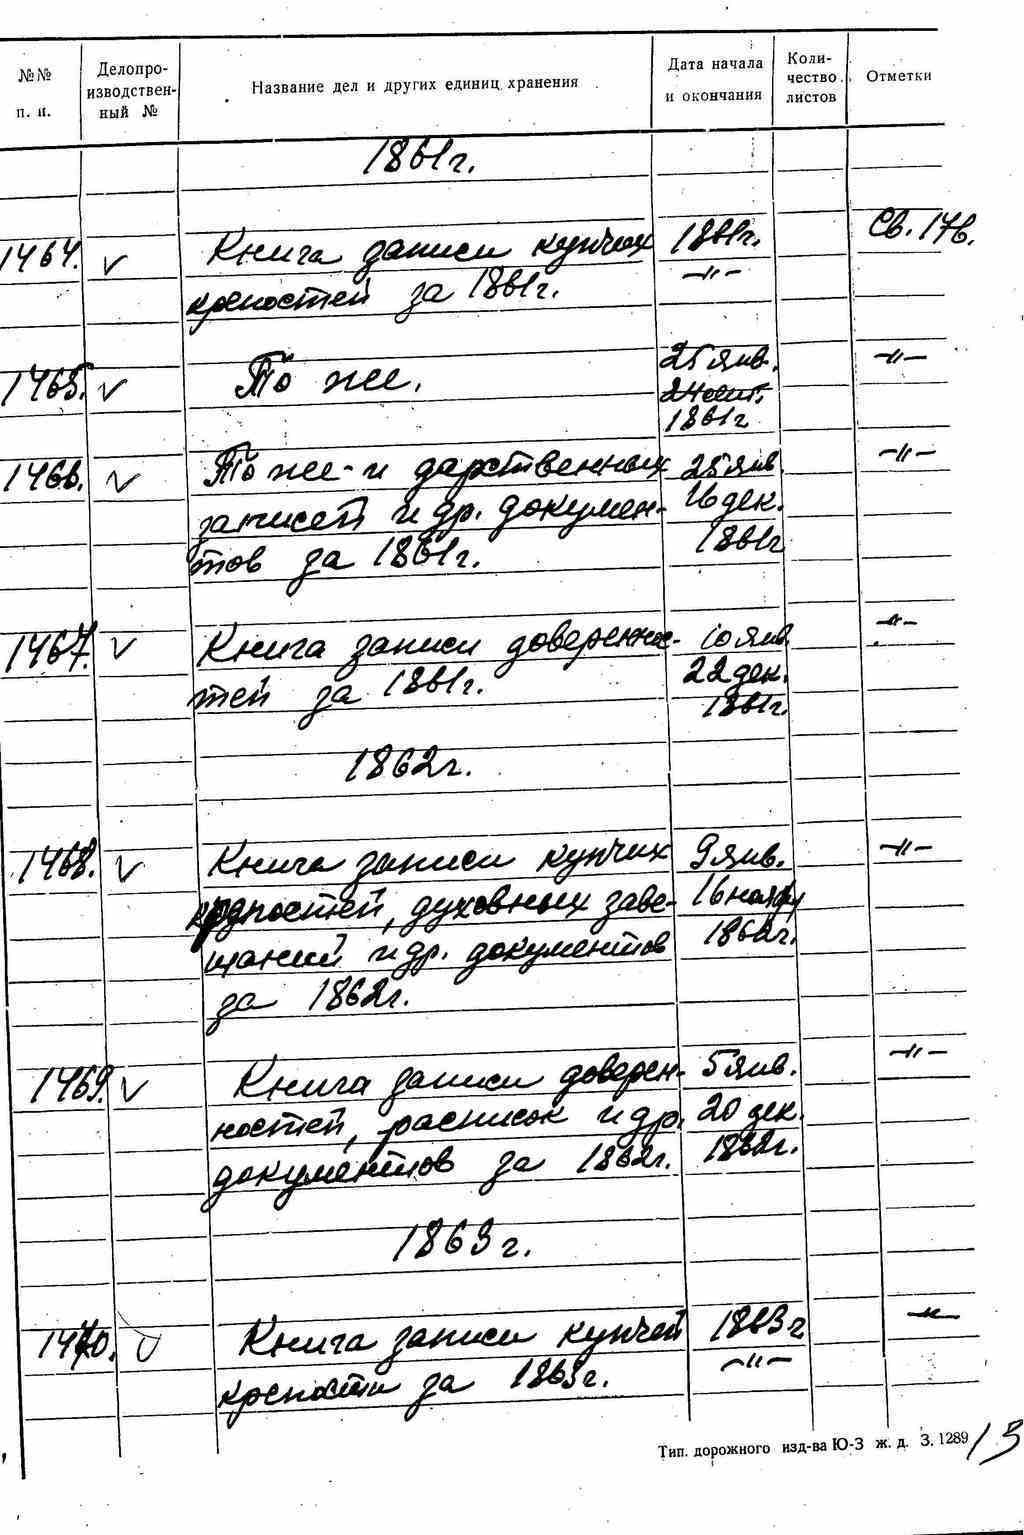 №№ п. п.
Делопро-
изводствен-
ный №
Название дел и других единиц хранения
Дата начала
и окончания
Коли-
чество
листов
Отметки
1861г.
1464. Книга записи купчих 1861г. Св. 176.
крепостей за 1861г. —"—
1465. То же. 25 янв. —"—
24 сент.
1861г
1466. То же и дарственных 25 янв —"—
записей и др. докумен- 16 дек.
тов за 1861г. 1861г
1467. Книга записи довереннос- 10 янв —"—
тей за 1861г. 22 дек.
1861г.
1862г.
1468. Книга записи купчих 9 янв. —"—
крепостей, духовных заве- 16 ноября
щаний и др. документов 1862г.
за 1862г.
1469. Книга записи доверен- 5 янв. —"—
ностей, расписок и др. 20 дек.
документов за 1862г. 1862г.
1863г.
1470. Книга записи купчей 1863г —"—
крепости за 1863г. —"—
Тип. дорожного изд-ва Ю-З ж. д. З. 1289
13